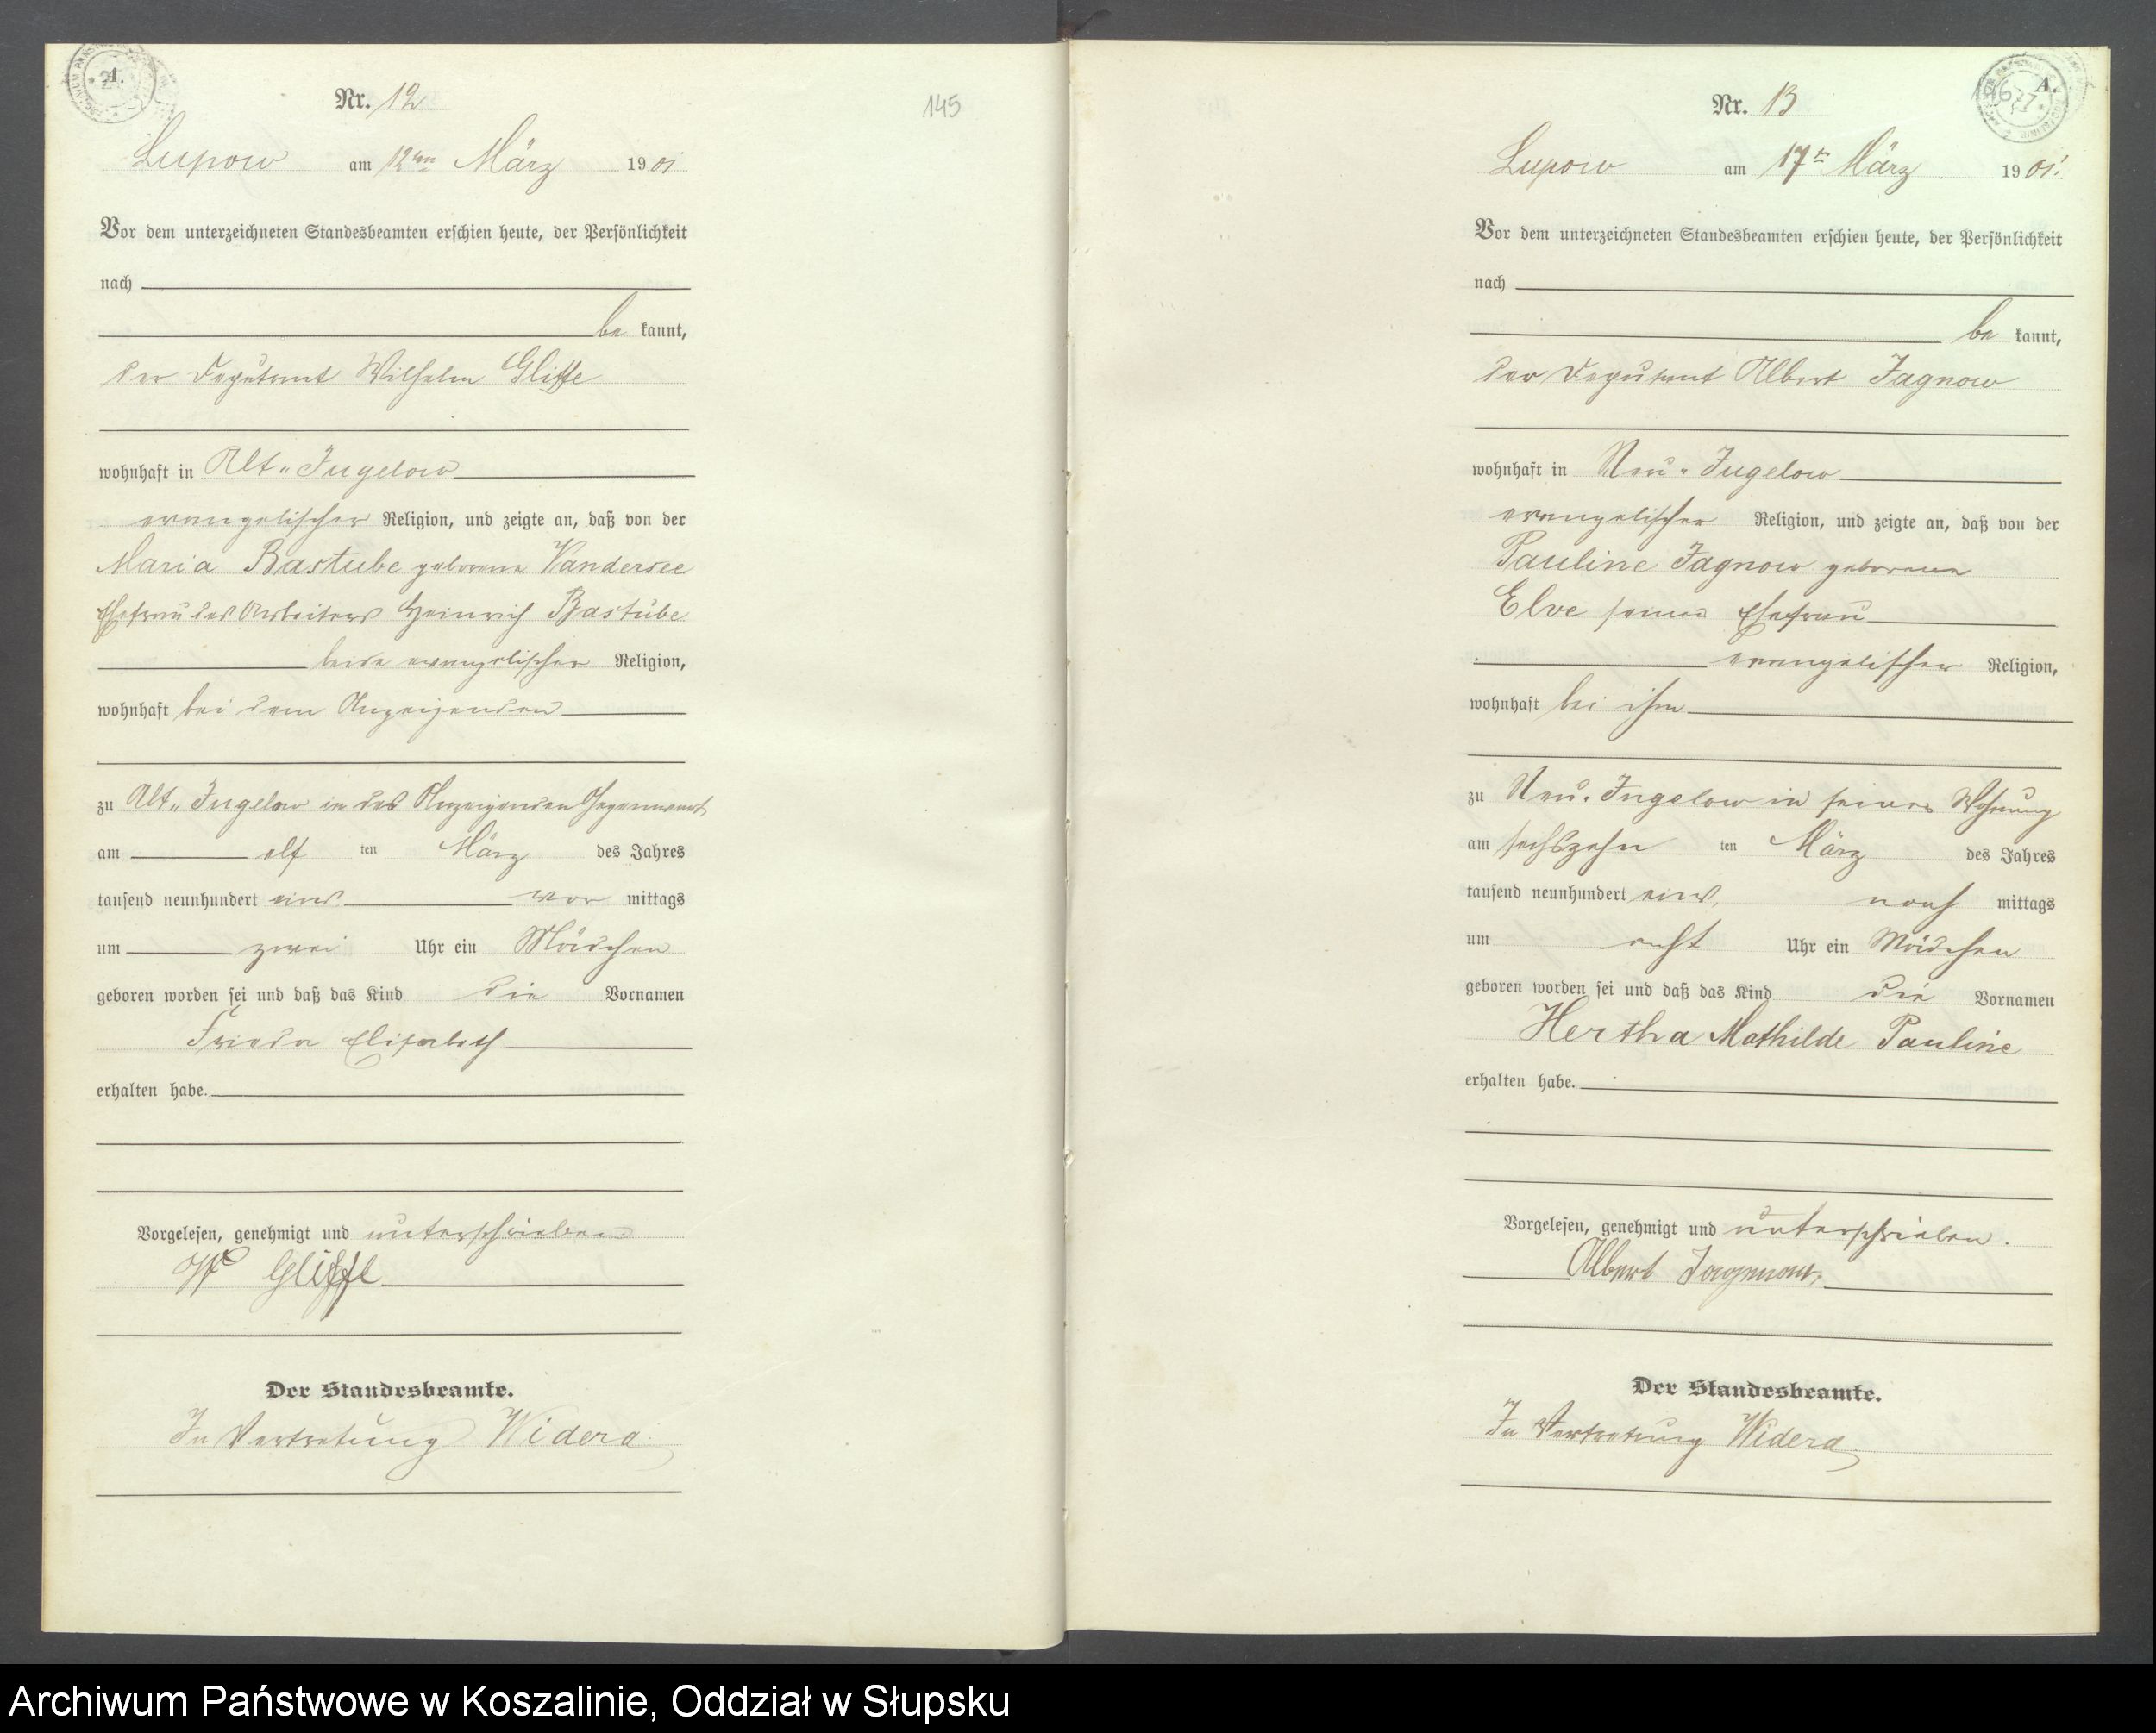 A.
Nr. 12
Lupow am 12ten März 1901
Vor dem unterzeichneten Standesbeamten erschien heute, der Persönlichkeit
nach
be kannt,
der Deputant Wilhelm Gliffe
wohnhaft in Alt-Jugelow
evangelischer Religion, und zeigte an, daß von der
Maria Bastube geborene Vandersee
Ehefrau des Arbeiters Heinrich Bastube
beide evangelischer Religion,
wohnhaft bei dem Anzeigenden
zu Alt-Jugelow in des Anzeigenden Gegenwart
am elf ten März des Jahres
tausend neunhundert eins vor mittags
um zwei Uhr ein Mädchen
geboren worden sei und daß das Kind die Vornamen
Frieda Elisabeth
erhalten habe.
Vorgelesen, genehmigt und unterschrieben
W Gliffe
Der Standesbeamte.
In Vertretung Widera
145
A.
Nr. 13
Lupow am 17ten März 1901.
Vor dem unterzeichneten Standesbeamten erschien heute, der Persönlichkeit
nach
be kannt,
der Deputant Albert Jagnow
wohnhaft in Neu-Jugelow
evangelischer Religion, und zeigte an, daß von der
Pauline Jagnow geborene
Elve seiner Ehefrau
evangelischer Religion,
wohnhaft bei ihm
zu Neu-Jugelow in seiner Wohnung
am sechszehn ten März des Jahres
tausend neunhundert eins, nach mittags
um acht Uhr ein Mädchen
geboren worden sei und daß das Kind die Vornamen
Hertha Mathilde Pauline
erhalten habe.
Vorgelesen, genehmigt und unterschrieben.
Albert Jagnow,
Der Standesbeamte.
In Vertretung Widera
Archiwum Państwowe w Koszalinie, Oddział w Słupsku